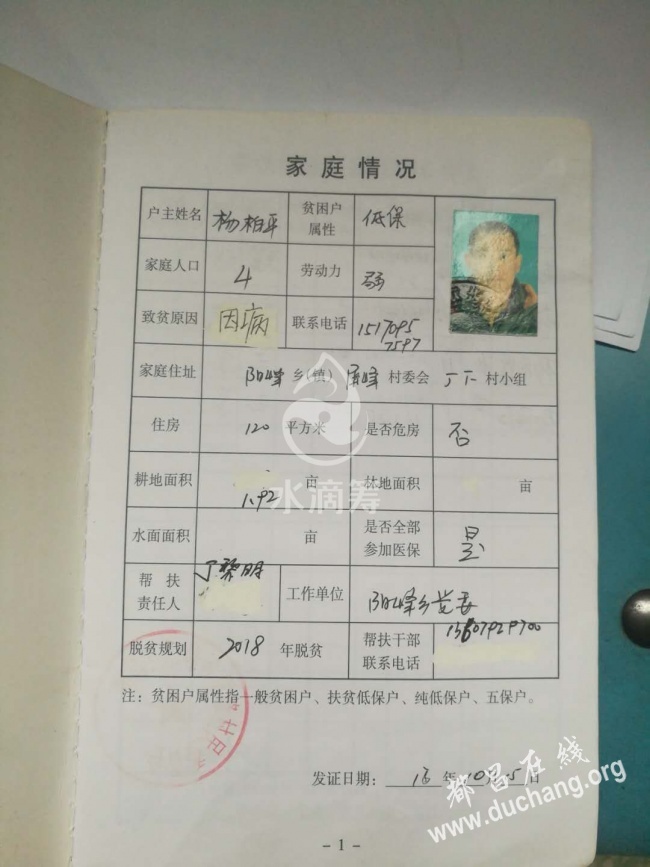 家庭情况
户主姓名 杨柏平 贫困户属性 低保
家庭人口 4 劳动力
致贫原因 因病 联系电话 15170957597
家庭住址 阳峰乡(镇) 峰村委会 丁下村小组
住房 120 平方米 是否危房 否
耕地面积 1.92 亩 林地面积 亩
水面面积 亩 是否全部参加医保 是
帮扶责任人 丁黎明 工作单位 阳峰乡党委
脱贫规划 2018 年脱贫 帮扶干部联系电话
注:贫困户属性指一般贫困户、扶贫低保户、纯低保户、五保户。
发证日期: 年10月 5日
- 1 -
水滴筹
都昌在线
www.duchang.org